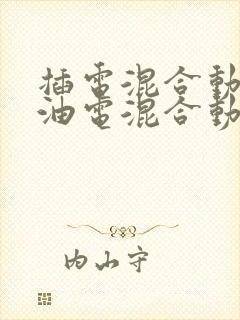 插電混合動
油電混合動
内山守